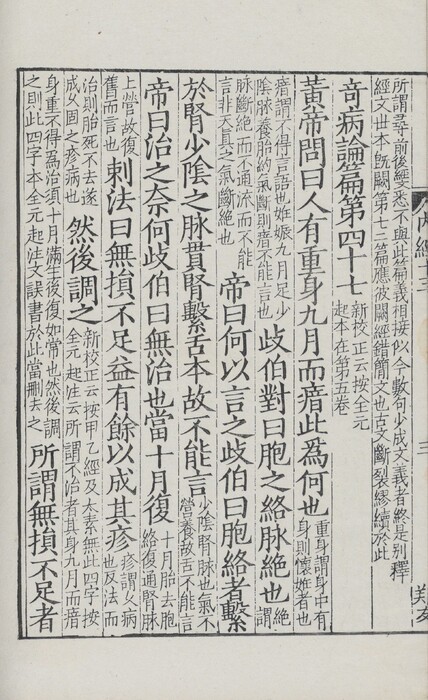 所謂尋前後經文悉不與此篇義相接似今數句少成文義者終是别釋
經文世本既闕第七二篇應彼闕經錯簡文也古文斷裂繆續於此
奇病論篇第四十七 新校正云按全元
起本在第五卷
黄帝問曰人有重身九月而瘖此爲何也 重身謂身中有
身則懷姙者也
瘖謂不得言語也姙娠九月足少
陰脉養胎約氣斷則瘖不能言也 歧伯對曰胞之絡脉絶也 絶
謂
脉斷絶而不通流而不能
言非天真之氣斷絶也 帝曰何以言之歧伯曰胞絡者繫
於腎少陰之脉貫腎繫舌本故不能言 少陰腎脉也氣不
營養故舌不能言
帝曰治之柰何歧伯曰無治也當十月復 十月胎去胞
絡復通腎脉
上營故復
舊而言也 刺法曰無損不足益有餘以成其疹 疹謂久病
也反法而
治則胎死不去遂
成久固之疹病也 然後調之 新校正云按甲乙經及太素無此四字按
全元起注云所謂不治者其身九月而瘖
身重不得爲治須十月滿生後復如常也然後調
之則此四字本全元起注文誤書於此當刪去之 所謂無損不足者
内經十三
三